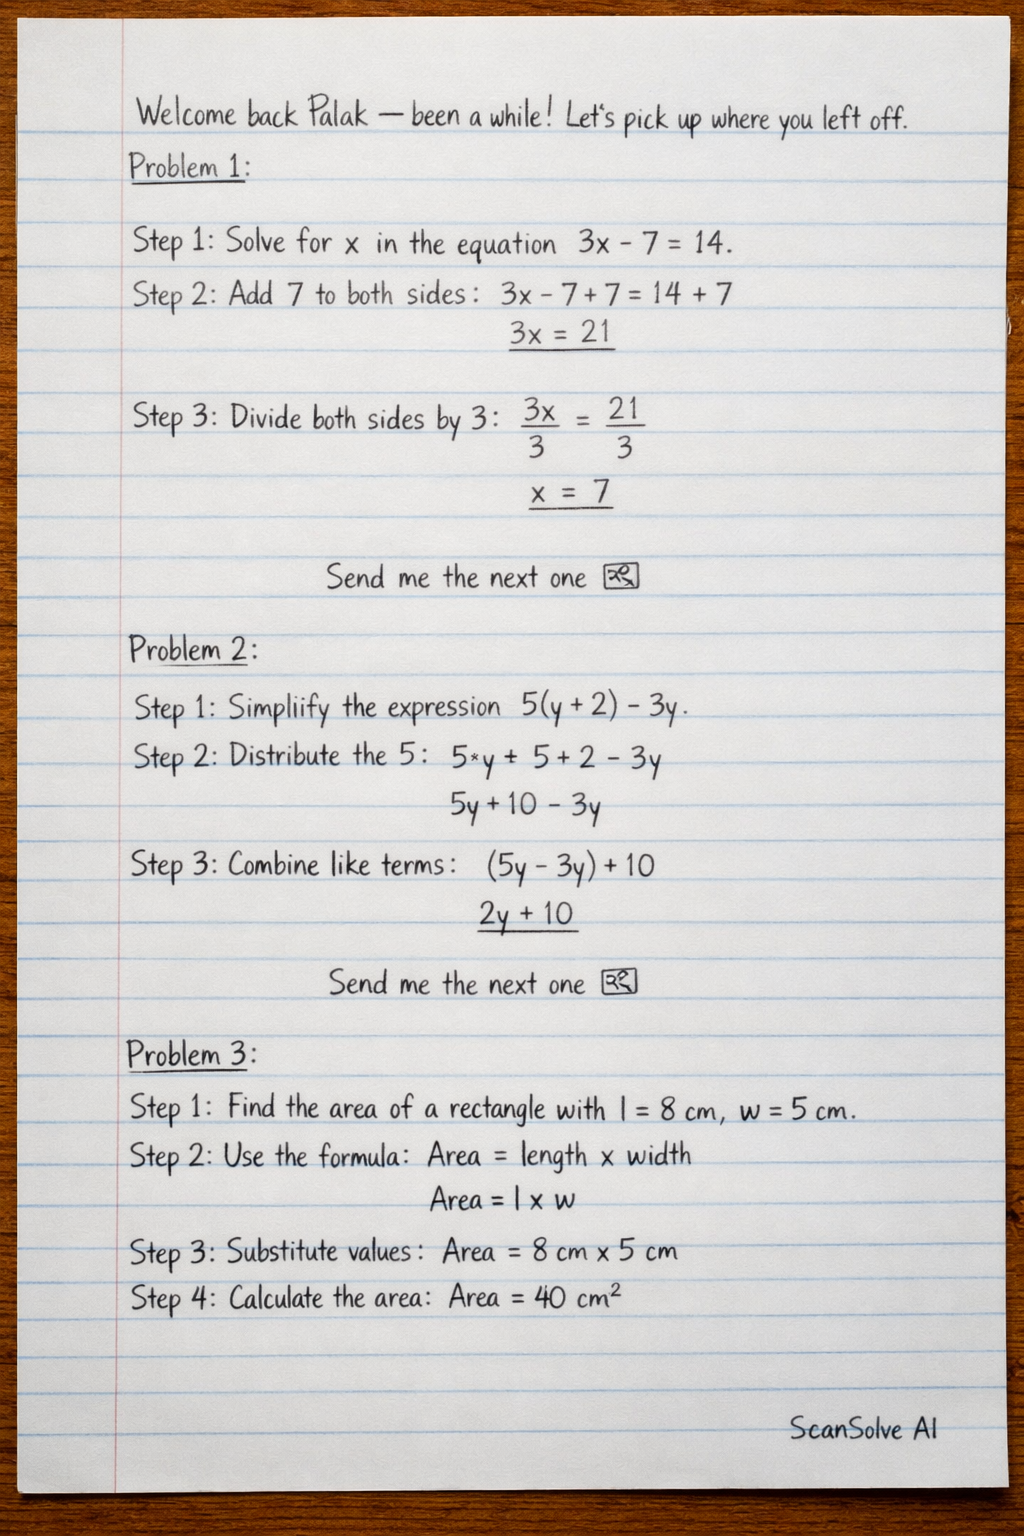 Welcome back Palak — been a while! Let's pick up where you left off.
Problem 1:
Step 1: Solve for x in the equation 3x - 7 = 14.
Step 2: Add 7 to both sides: 3x - 7 + 7 = 14 + 7
3x = 21
Step 3: Divide both sides by 3: 3x/3 = 21/3
x = 7
Send me the next one
Problem 2:
Step 1: Simpliify the expression 5(y + 2) - 3y.
Step 2: Distribute the 5: 5*y ± 5 + 2 - 3y
5y + 10 - 3y
Step 3: Combine like terms: (5y - 3y) + 10
2y + 10
Send me the next one
Problem 3:
Step 1: Find the area of a rectangle with l = 8 cm, w = 5 cm.
Step 2: Use the formula: Area = length x width
Area = l x w
Step 3: Substitute values: Area = 8 cm x 5 cm
Step 4: Calculate the area: Area = 40 cm²
ScanSolve AI